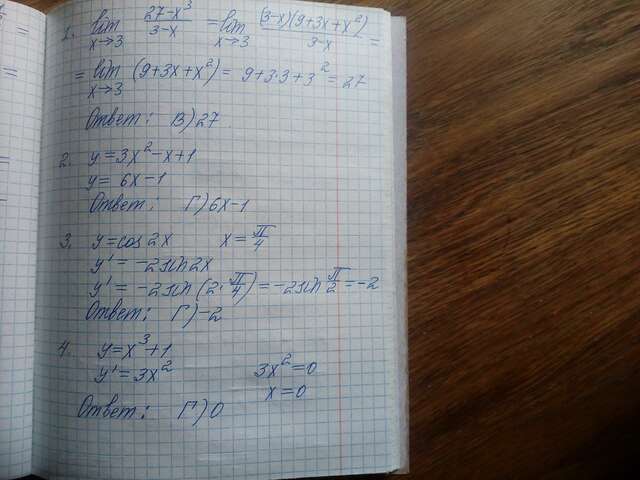 1. lim x→3 (27-x³)/(3-x) = lim x→3 (3-x)(9+3x+x²)/(3-x) =
= lim x→3 (9+3x+x²) = 9+3·3+3² = 27
Ответ: В) 27
2. y = 3x² - x + 1
y = 6x - 1
Ответ: Г) 6x-1
3. y = cos 2x x = π/4
y' = -2sin 2x
y' = -2sin (2·π/4) = -2sin π/2 = -2
Ответ: Г) -2
4. y = x³ + 1
y' = 3x² 3x² = 0
x = 0
Ответ: Г) 0